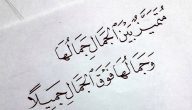 مُتَمَيِّزٌ بَيْنَ الجَمَالِ جَمَالُهَا
وَجَمَالُهَا فَوْقَ الجَمَالِ جَمِيلاً